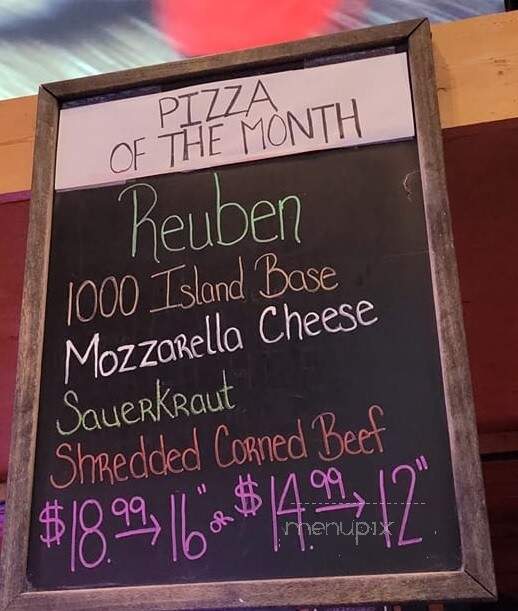 PIZZA
OF THE MONTH
Reuben
1000 Island Base
Mozzarella Cheese
Sauerkraut
Shredded Corned Beef
$18.99→16" or $14.99→12"
menupix